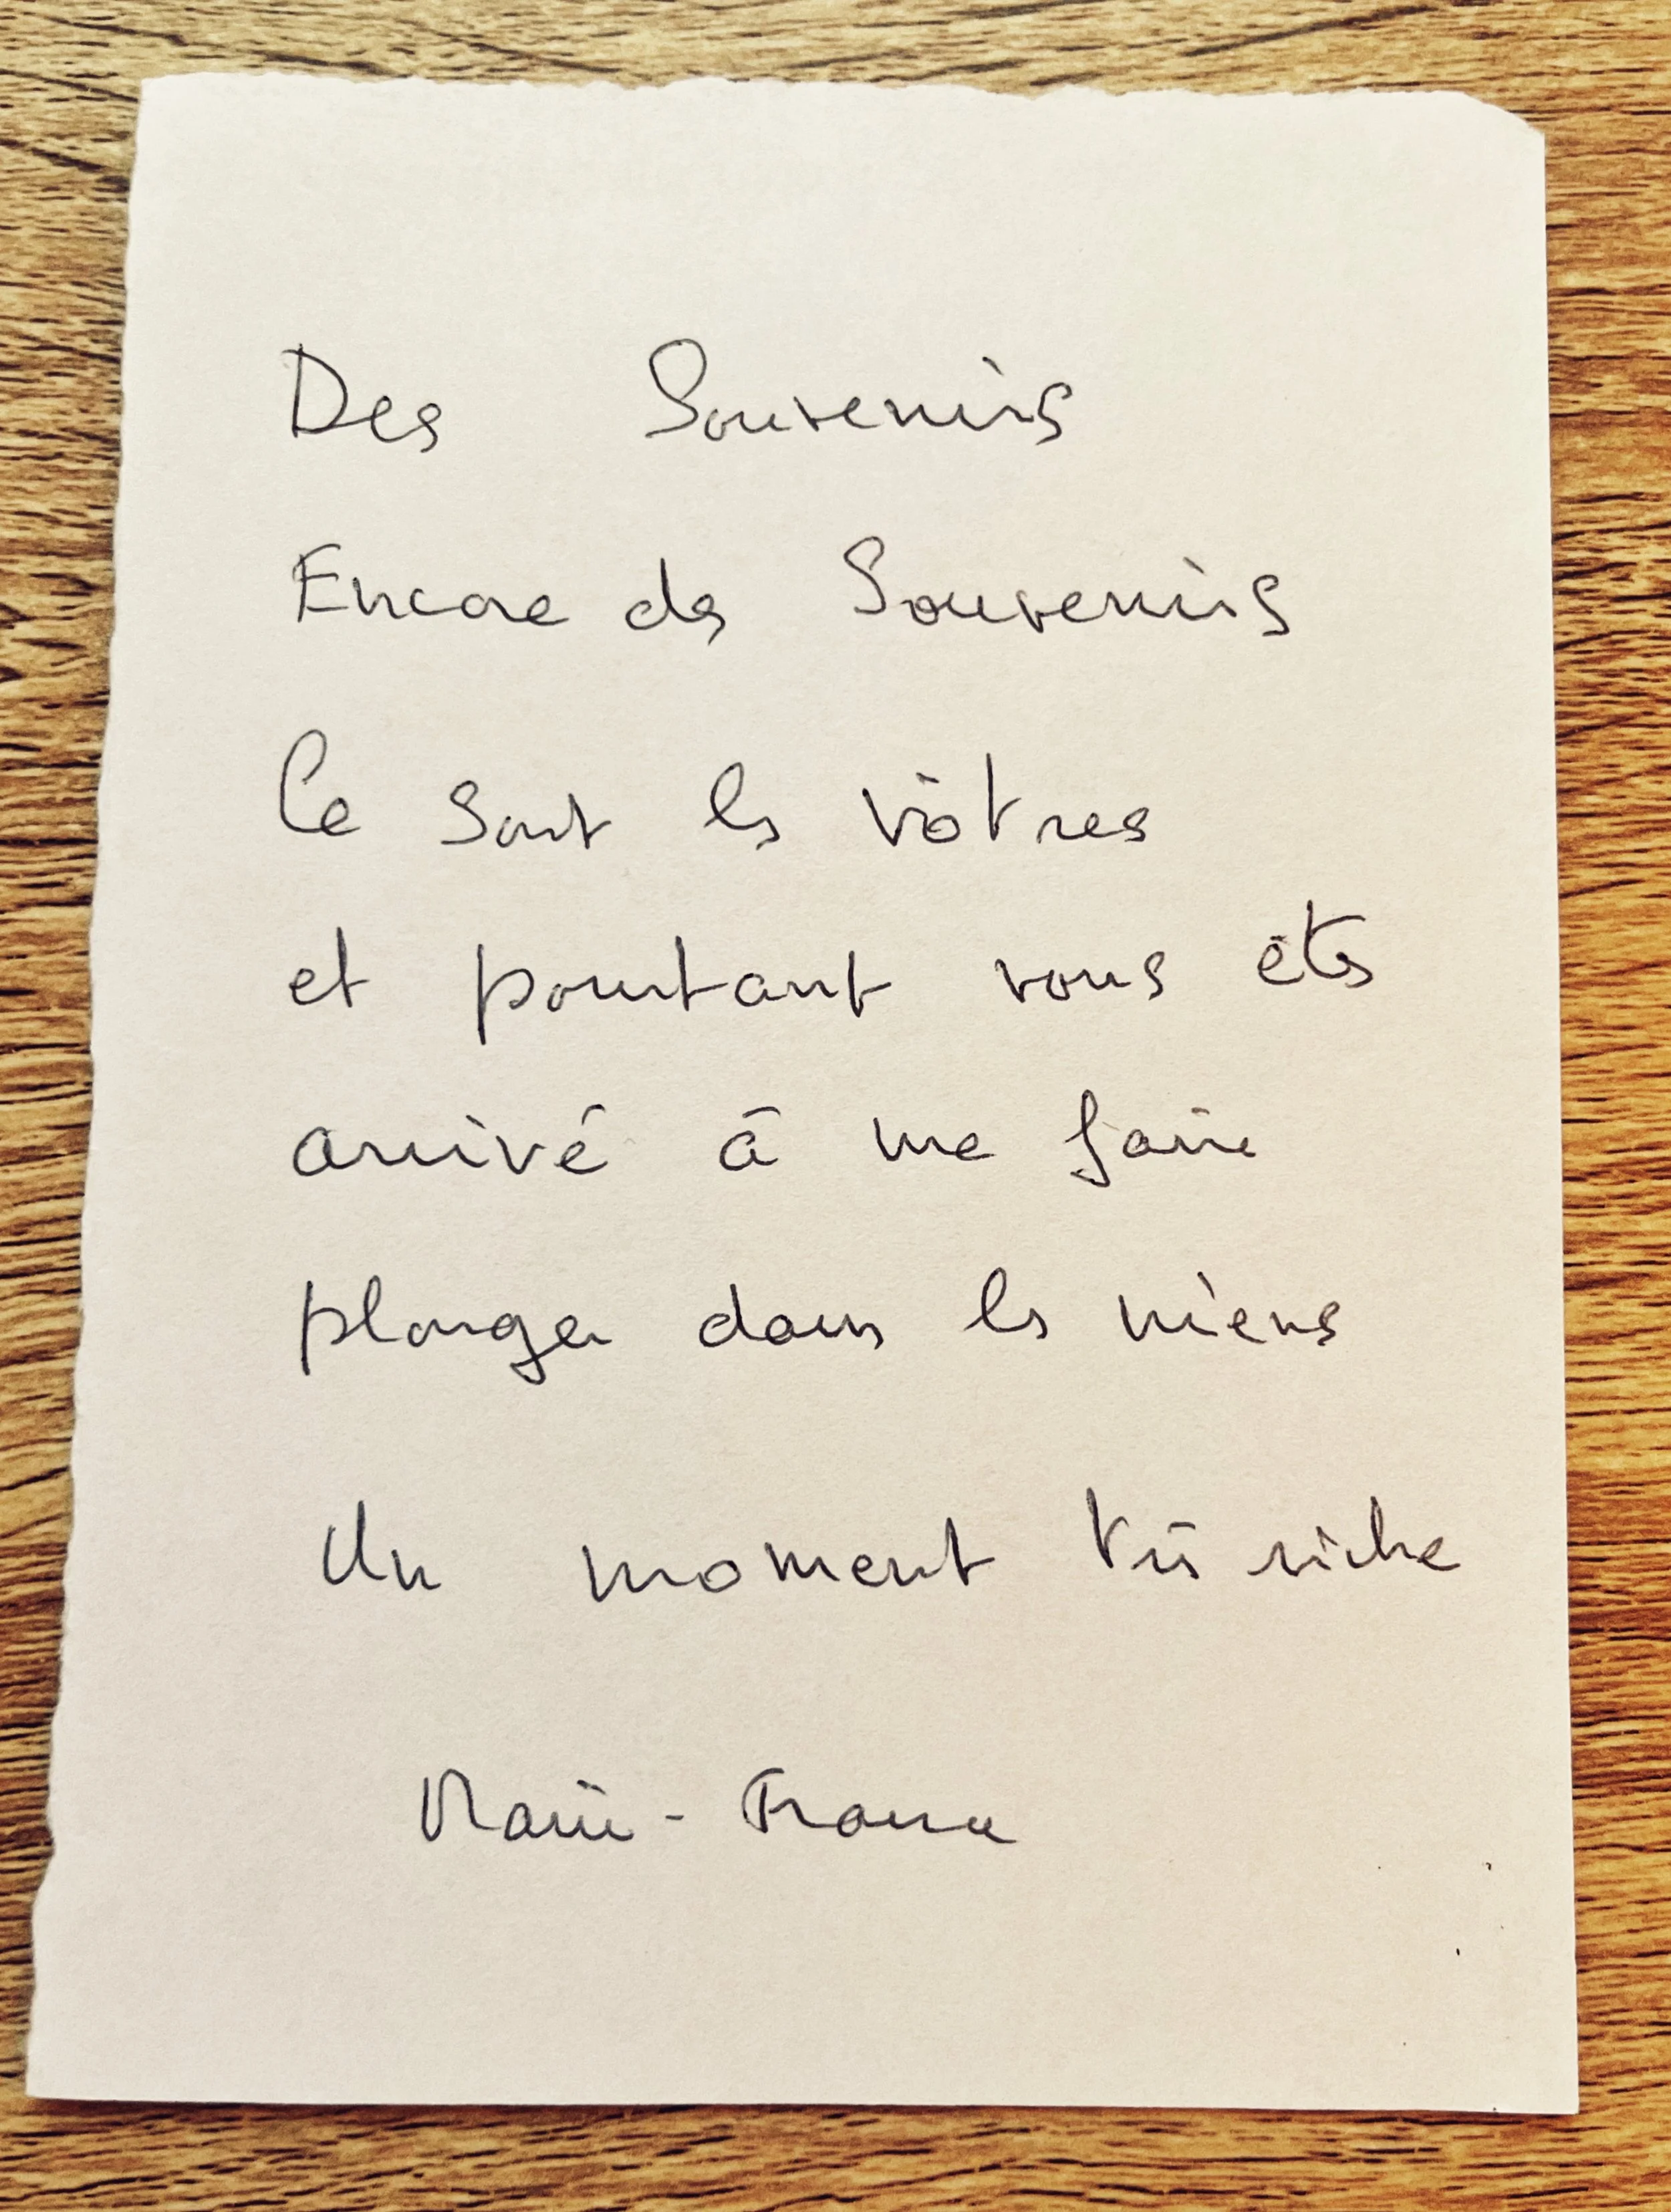 Des Souvenirs
Encore des Souvenirs
Ce sont les vôtres
et pourtant vous êtes
arrivé à me faire
plonger dans les miens
Un moment très riche
Marie-France